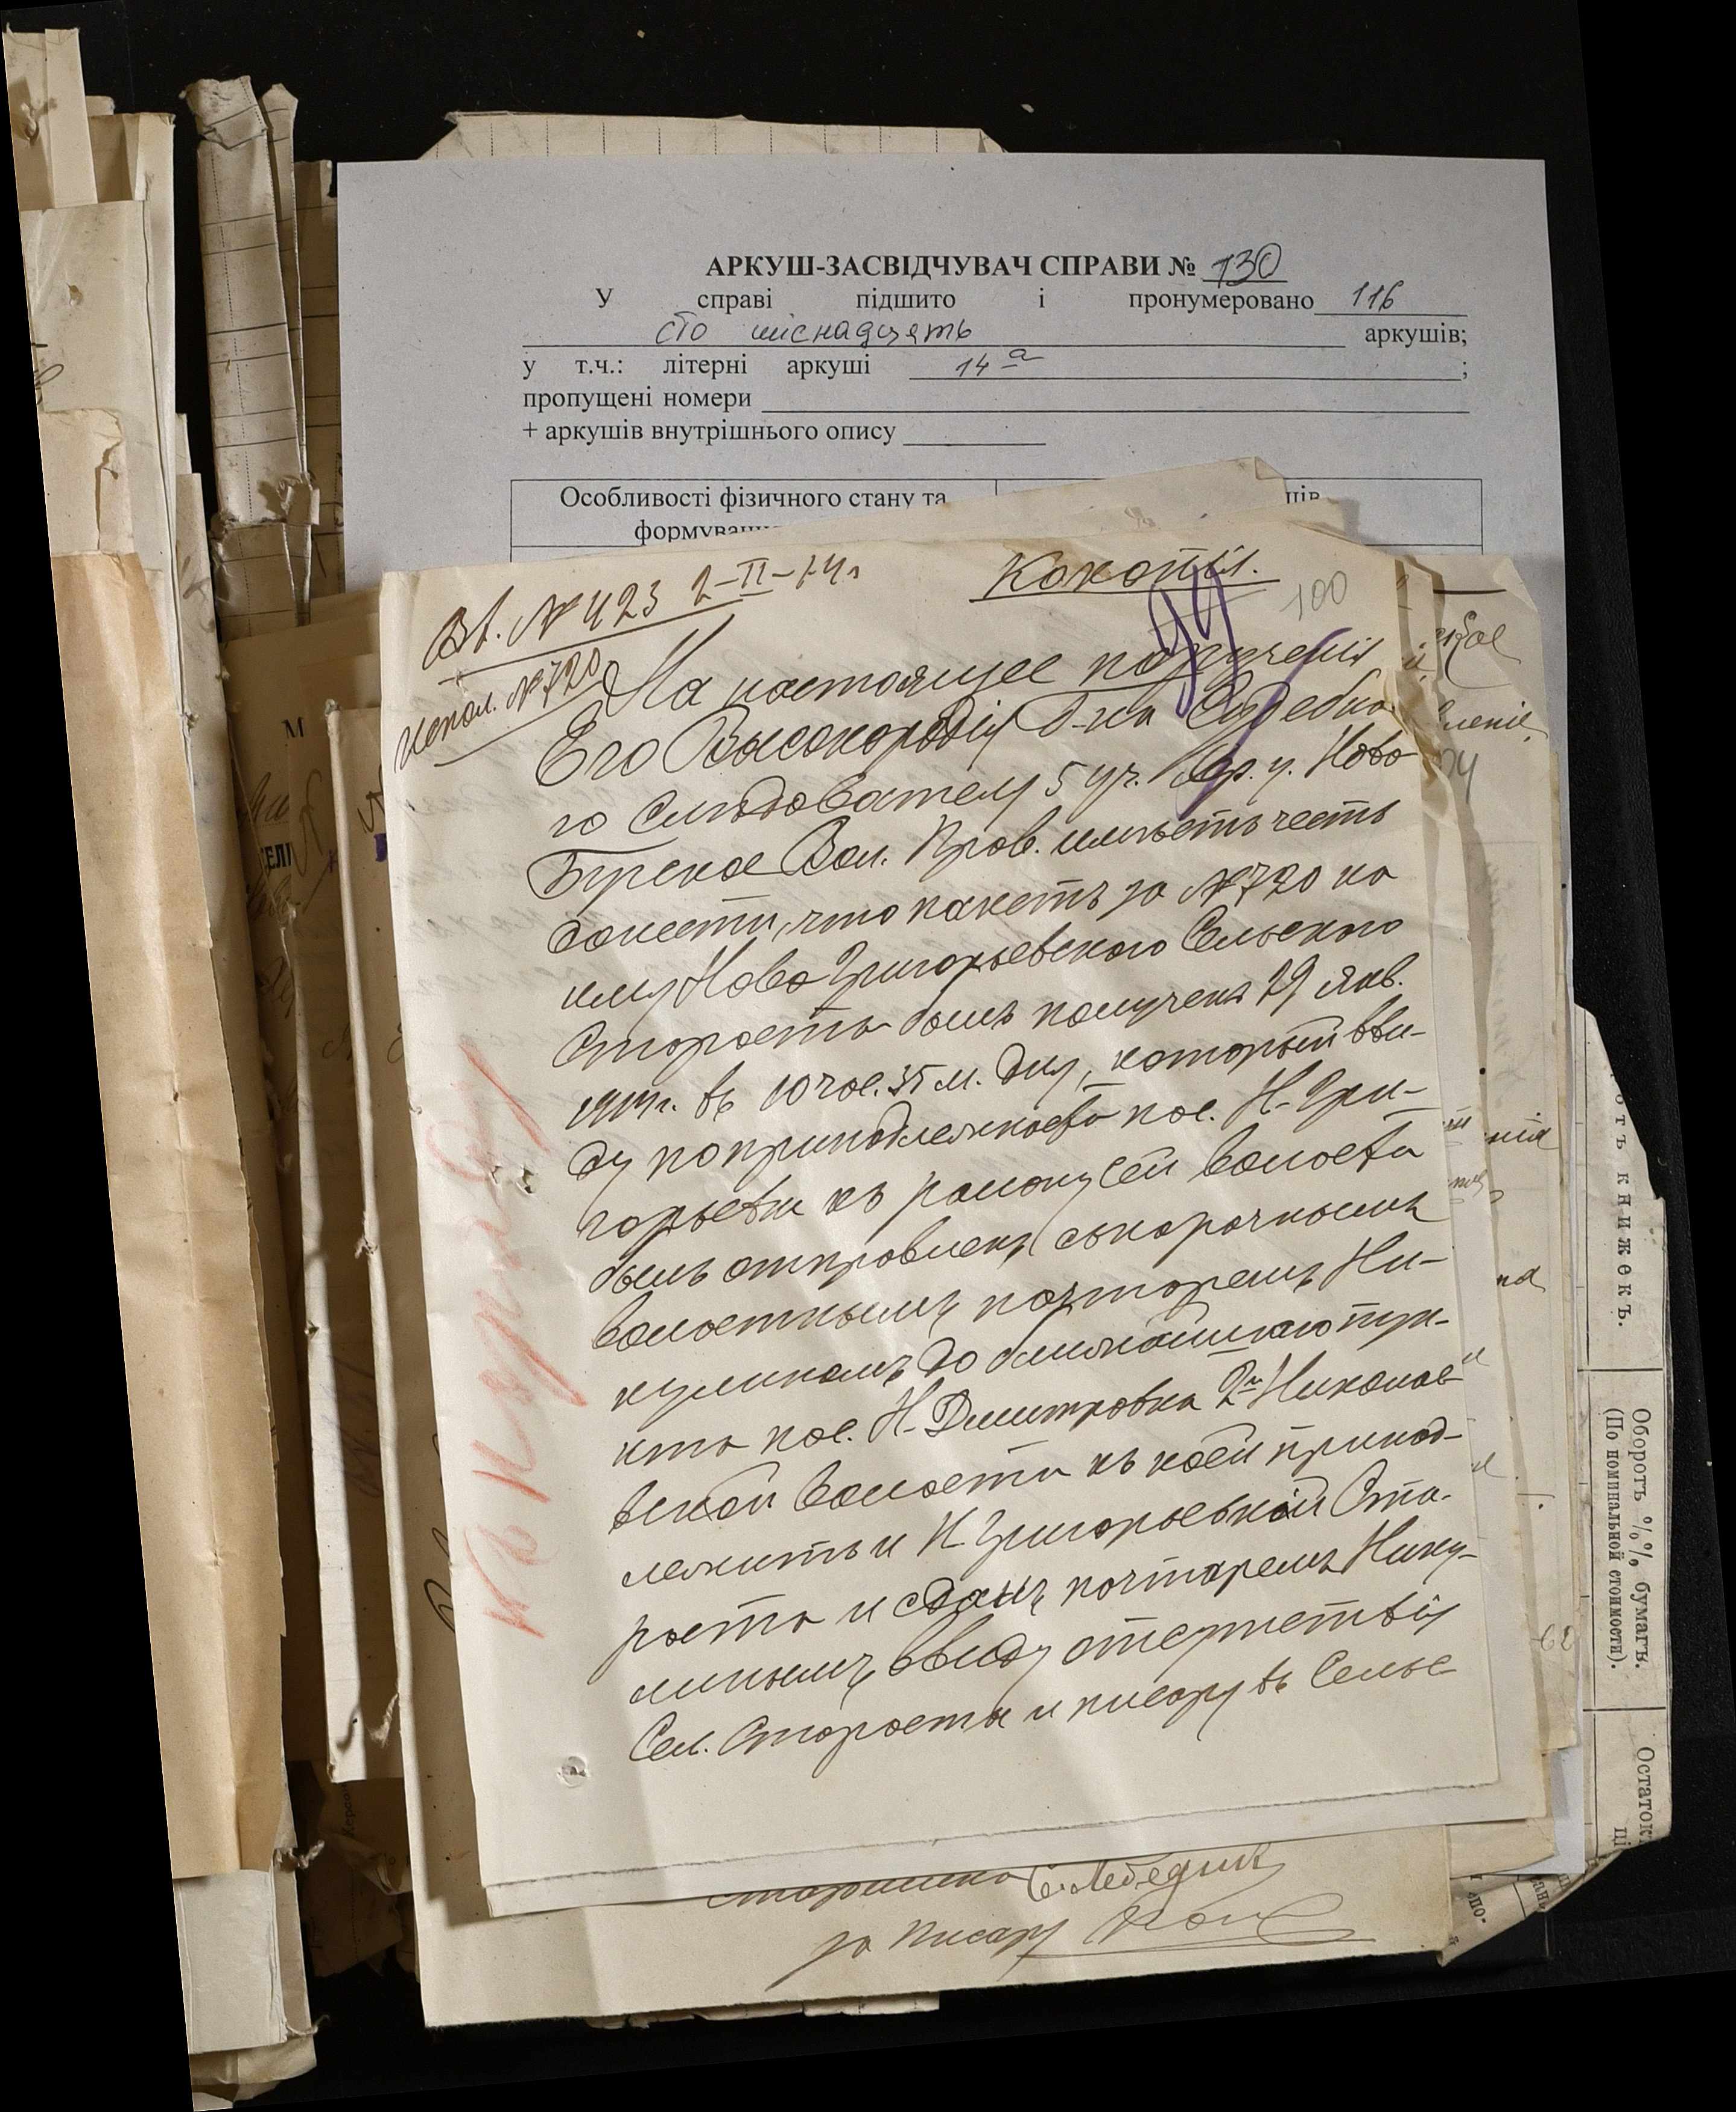 АРКУШ-ЗАСВІДЧУВАЧ СПРАВИ № 130
У справі підшито і пронумеровано 116
сто шіснадцять аркушів;
у т.ч.: літерні аркуші 14 а ;
пропущені номери
+ аркушів внутрішнього опису
Особливості фізичного стану та
Вх. № 423 2-II-14 г
100
99
испол. № 720
На настоящее порученія
Его Высокородія Г-на Судебна
го Слѣдователя 5 уч. Хер. у. Ново
Бугское Вол. Прав. имѣетъ честь
донести, что пакетъ за № 720 на
имя Ново Григорьевского Сельского
Старосты былъ полученъ 29 Янв.
1914 г. въ 10 час. 35 м. дня, который вви-
ду непринадлежности пос. Н-Гри-
горьевки къ району сей волости
былъ отправленъ съ нарочнымъ
волостнымъ почтаремъ Ни-
кулинамъ до ближайшаго пун-
кта пос. Н. Дмитровка 2й Николаев
вской волости къ коей принад-
лежитъ и Н. Григорьевкій Ста-
роста и сданъ почтаремъ Нику-
линымъ ввиду отсутствія
Сел. Старосты и писаря въ Сельс
Къ дѣлу
старшина С. Лебедюк
за Писаря
отъ книжекъ.
Оборотъ %% бумагъ.
(По номинальной стоимости).
Остатокъ